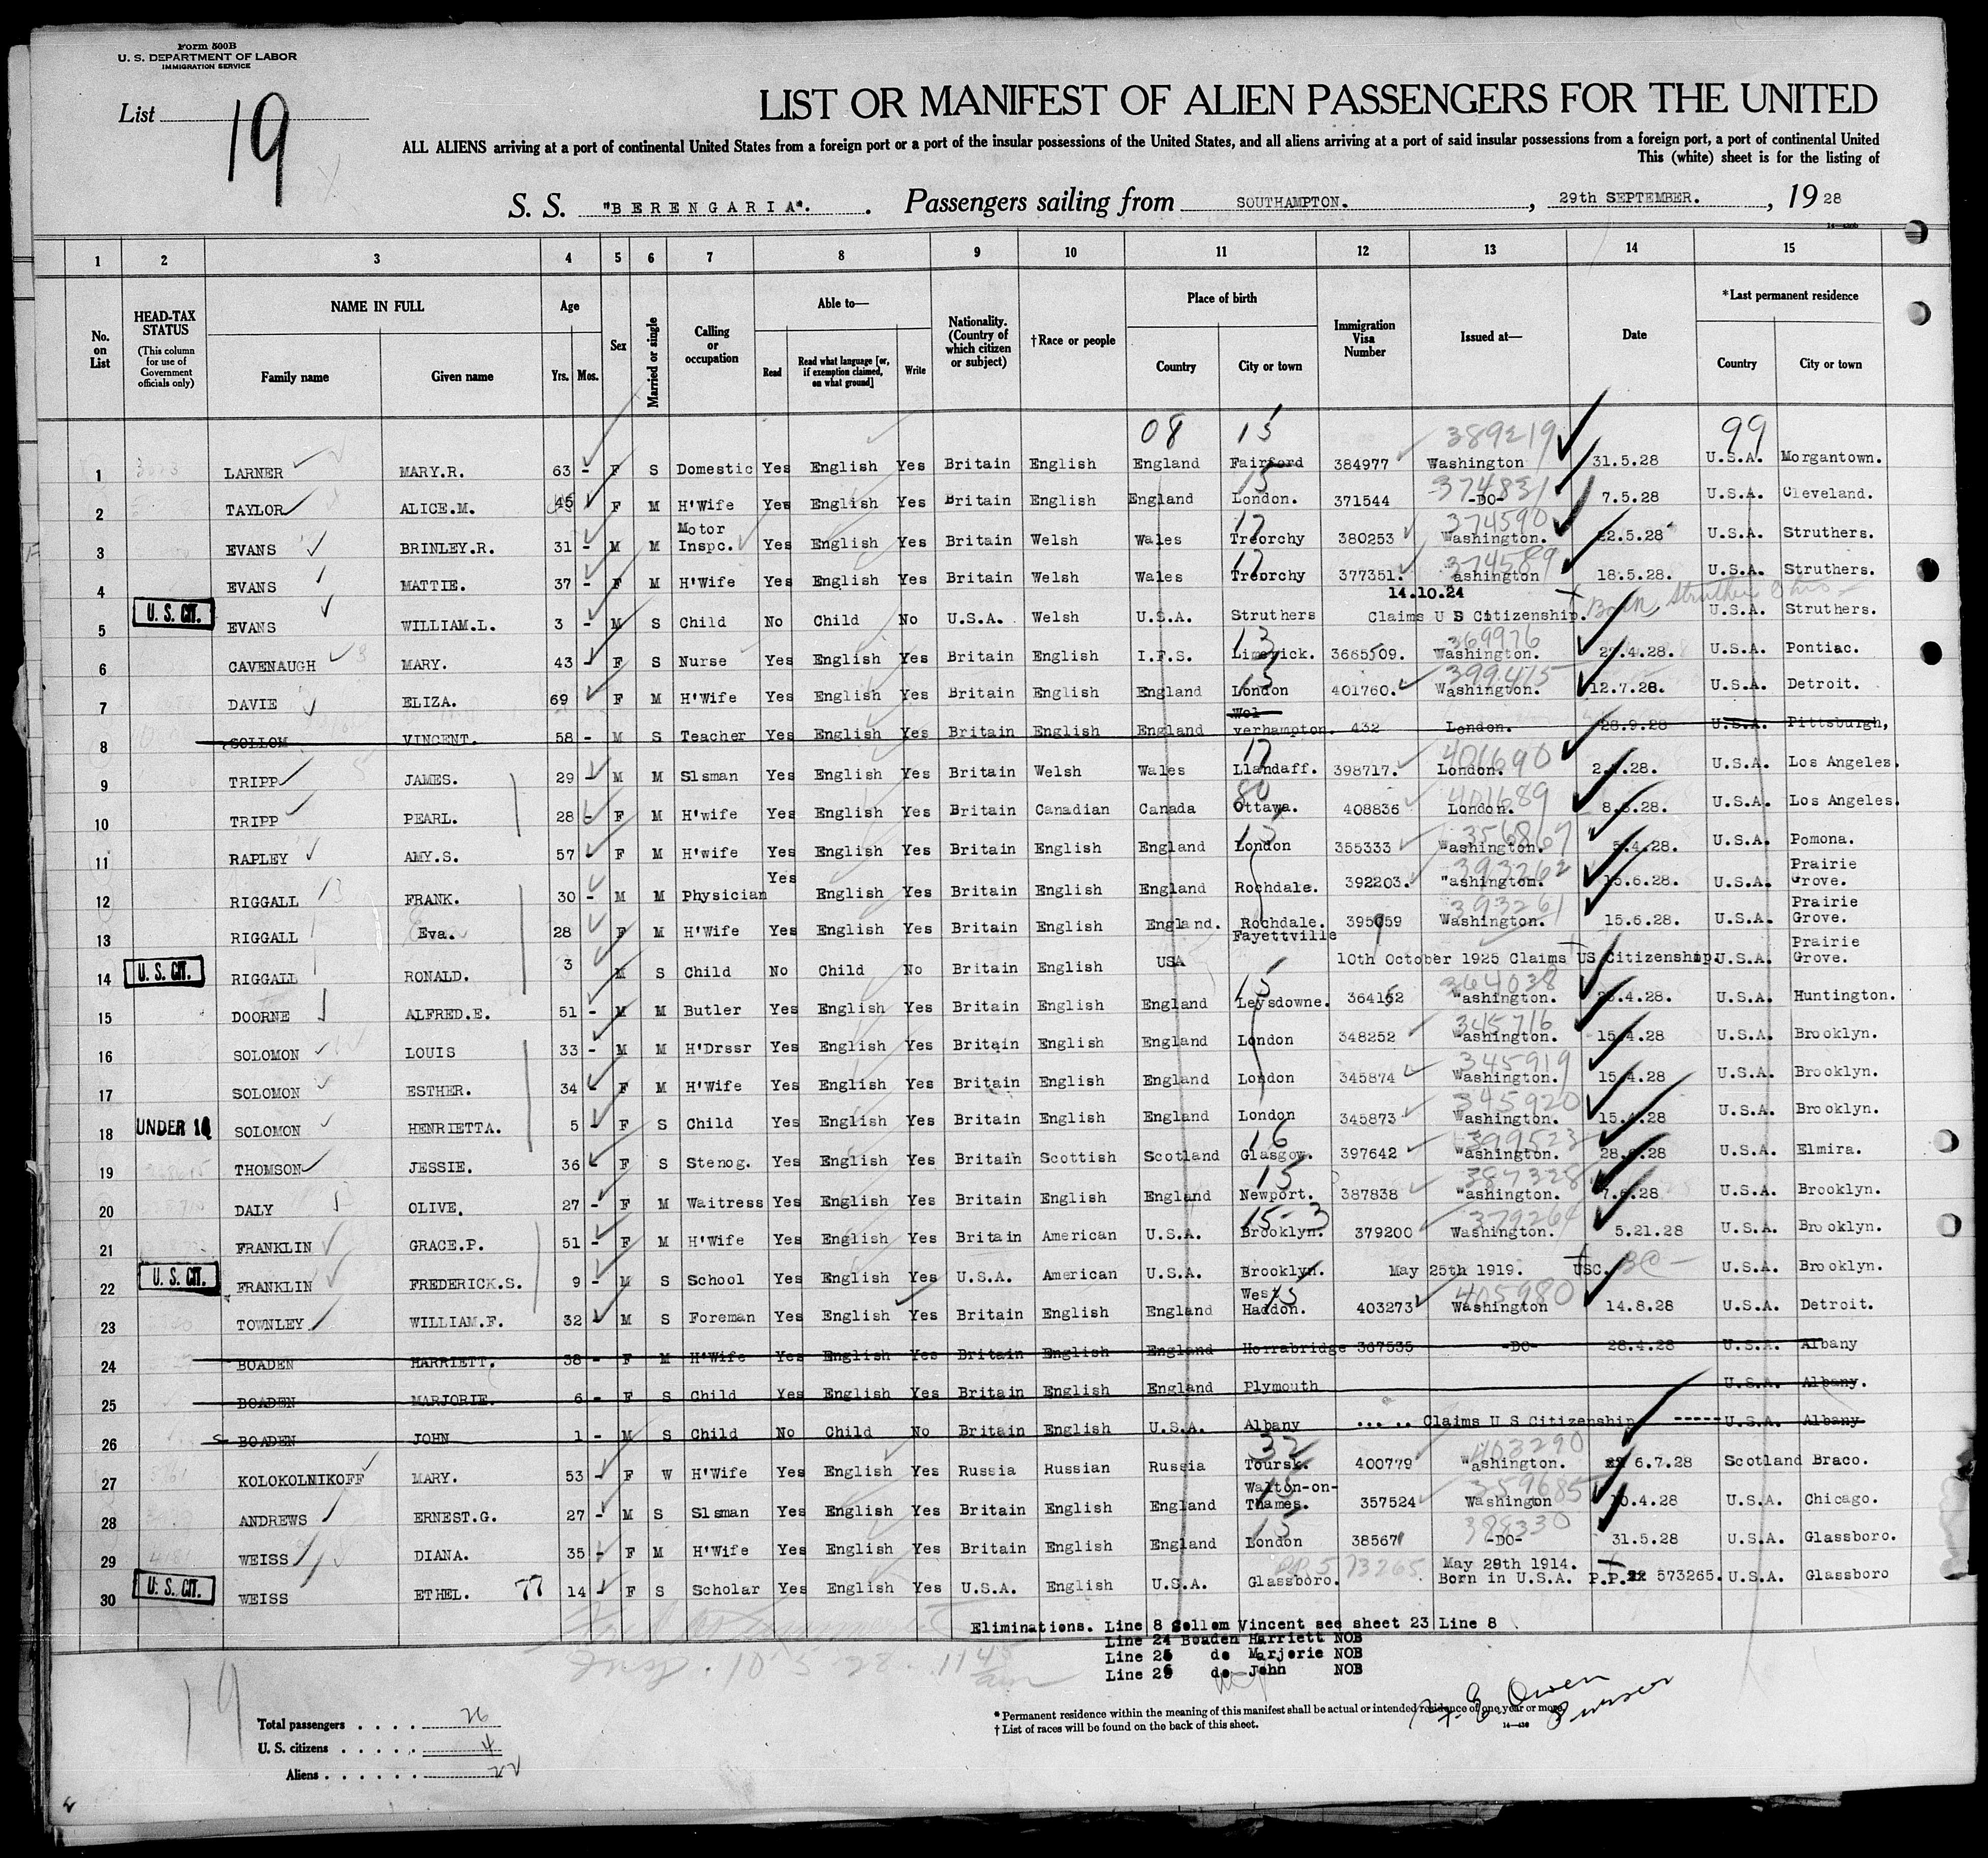 Form 500B
U. S. DEPARTMENT OF LABOR
IMMIGRATION SERVICE
List 19
LIST OR MANIFEST OF ALIEN PASSENGERS FOR THE UNITED
ALL ALIENS arriving at a port of continental United States from a foreign port or a port of the insular possessions of the United States, and all aliens arriving at a port of said insular possessions from a foreign port, a port of continental United
This (white) sheet is for the listing of
S. S. "BERENGARIA". Passengers sailing from SOUTHAMPTON. , 29th SEPTEMBER. , 19 28
1 2 3 4 5 6 7 8 9 10 11 12 13 14 15
No. on List
HEAD-TAX STATUS (This column for use of Government officials only)
NAME IN FULL
Family name Given name
Age
Yrs. Mos.
Sex
Married or single
Calling or occupation
Able to—
Read Read what language [or, if exemption claimed, on what ground] Write
Nationality. (Country of which citizen or subject)
†Race or people
Place of birth
Country City or town
Immigration Visa Number
Issued at—
Date
*Last permanent residence
Country City or town
08 15 389219 99
1 LARNER MARY.R. 63 - F S Domestic Yes English Yes Britain English England Fairford 384977 Washington 31.5.28 U.S.A. Morgantown.
15 374831
2 TAYLOR ALICE.M. 45 F M H'Wife Yes English Yes Britain English England London. 371544 -DO- 7.5.28 U.S.A. Cleveland.
17 374590
3 EVANS BRINLEY.R. 31 - M M Motor Inspc. Yes English Yes Britain Welsh Wales Treorchy 380253 Washington. 22.5.28 U.S.A. Struthers.
17 374589
4 EVANS MATTIE. 37 - F M H'Wife Yes English Yes Britain Welsh Wales Treorchy 377351. ashington 18.5.28. U.S.A. Struthers.
14.10.24 Born Struthers Ohio
5 U. S. CIT. EVANS WILLIAM.L. 3 - M S Child No Child No U.S.A. Welsh U.S.A. Struthers Claims U S Citizenship. U.S.A. Struthers.
13 369976
6 CAVENAUGH MARY. 43 - F S Nurse Yes English Yes Britain English I.F.S. Limerick. 3665509. Washington. .4.28. U.S.A. Pontiac.
15 399415
7 DAVIE ELIZA. 69 F M H'Wife Yes English Yes Britain English England London 401760. Washington. 12.7.28. U.S.A. Detroit.
8 SOLLOM VINCENT. 58 - M S Teacher Yes English Yes Britain English England Wol-verhampton. 432 London. 28.9.28 U.S.A. Pittsburgh,
17 401690
9 TRIPP JAMES. 29 M M Slsman Yes English Yes Britain Welsh Wales Llandaff. 398717. London. .28. U.S.A. Los Angeles.
80 401689
10 TRIPP PEARL. 28 - F M H'wife Yes English Yes Britain Canadian Canada Ottawa. 408836 London. .28. U.S.A. Los Angeles.
15 356867
11 RAPLEY AMY.S. 57 F M H'wife Yes English Yes Britain English England London 355333 Washington. 5.4.28. U.S.A. Pomona.
393262
12 RIGGALL FRANK. 30 - M M Physician Yes English Yes Britain English England Rochdale. 392203. "ashington. 15.6.28. U.S.A. Prairie Grove.
393261
13 RIGGALL Eva. 28 F M H'Wife Yes English Yes Britain English England. Rochdale. 395059 Washington. 15.6.28. U.S.A. Prairie Grove.
14 U. S. CIT. RIGGALL RONALD. 3 M S Child No Child No Britain English USA Fayettville 10th October 1925 Claims US Citizenship. U.S.A. Prairie Grove.
15 364038
15 DOORNE ALFRED.E. 51 - M M Butler Yes English Yes Britain English England Leysdowne. 364152 "ashington. .4.28. U.S.A. Huntington.
345716
16 SOLOMON LOUIS 33 - M M H'Drssr Yes English Yes Britain English England London 348252 Washington. 15.4.28 U.S.A. Brooklyn.
345919
17 SOLOMON ESTHER. 34 - F M H'Wife Yes English Yes Britain English England London 345874 Washington. 15.4.28 U.S.A. Brooklyn.
345920
18 UNDER 16 SOLOMON HENRIETTA. 5 - F S Child Yes English Yes Britain English England London 345873 Washington. 15.4.28 U.S.A. Brooklyn.
16 399523
19 THOMSON JESSIE. 36 - F S Stenog. Yes English Yes Britain Scottish Scotland Glasgow. 397642 Washington. 28. .28 U.S.A. Elmira.
15 387328
20 DALY OLIVE. 27 - F M Waitress Yes English Yes Britain English England Newport. 387838 "ashington. 7.6.28 U.S.A. Brooklyn.
15-3 379264
21 FRANKLIN GRACE.P. 51 - F M H'Wife Yes English Yes Britain American U.S.A. Brooklyn. 379200 Washington. 5.21.28 U.S.A. Brooklyn.
22 U. S. CIT. FRANKLIN FREDERICK.S. 9 - M S School Yes English Yes U.S.A. American U.S.A. Brooklyn. May 25th 1919. USC. BC- U.S.A. Brooklyn.
15 405980
23 TOWNLEY WILLIAM.F. 32 M S Foreman Yes English Yes Britain English England West Haddon. 403273 Washington 14.8.28 U.S.A. Detroit.
24 BOADEN HARRIETT. 38 - F M H'Wife Yes English Yes Britain English England Horrabridge 367535 -DO- 28.4.28 U.S.A. Albany
25 BOADEN MARJORIE. 6 - F S Child Yes English Yes Britain English England Plymouth U.S.A. Albany.
26 BOADEN JOHN 1 - M S Child No Child No Britain English U.S.A. Albany ... .. Claims U S Citizenship -----U.S.A. Albany
32 403290
27 KOLOKOLNIKOFF MARY. 53 - F W H'Wife Yes English Yes Russia Russian Russia Toursk. 400779 "ashington. 6.7.28 Scotland Braco.
15 359685
28 ANDREWS ERNEST.G. 27 - M S Slsman Yes English Yes Britain English England Walton-on-Thames. 357524 Washingon 10.4.28 U.S.A. Chicago.
15 388330
29 WEISS DIANA. 35 - F M H'Wife Yes English Yes Britain English England London 385671 -DO- 31.5.28 U.S.A. Glassboro.
PP. 573265 May 28th 1914.
30 U. S. CIT. WEISS ETHEL. 77 14 - F S Scholar Yes English Yes U.S.A. English U.S.A. Glassboro. Born in U.S.A. P.P. 573265. U.S.A. Glassboro
Eliminations. Line 8 Sollom Vincent see sheet 23 Line 8
Line 24 Boaden Harriett NOB
Line 25 do Marjorie NOB
Line 26 do John NOB
10-5-28. 11 45 am
19
Total passengers . . . . 26
U. S. citizens . . . . . 4
Aliens . . . . . . 22
* Permanent residence within the meaning of this manifest shall be actual or intended residence of one year or more.
† List of races will be found on the back of this sheet.
14—430
Owen
Purser